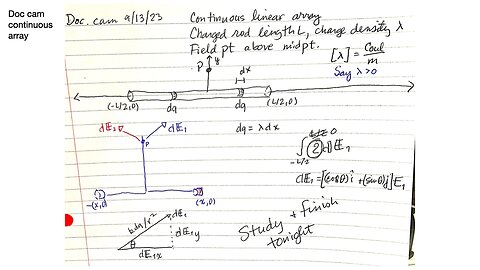 Doc cam
continuous
array
Doc. cam 9/13/23
Continuous linear array
Charged rod length L, charge density λ
Field pt above midpt.
[λ] = Coul/m
Say λ>0
P
y
dx
(-L/2,0)
dq
dq
(L/2,0)
dE2
dE1
P
dq = λdx
2
dE1
-L/2
dE1 = [(cosθ)i + (sinθ)j] E1
-(x,0)
(x,0)
kdq/r²
dE1
dE1y
θ
dE1x
Study + finish
tonight